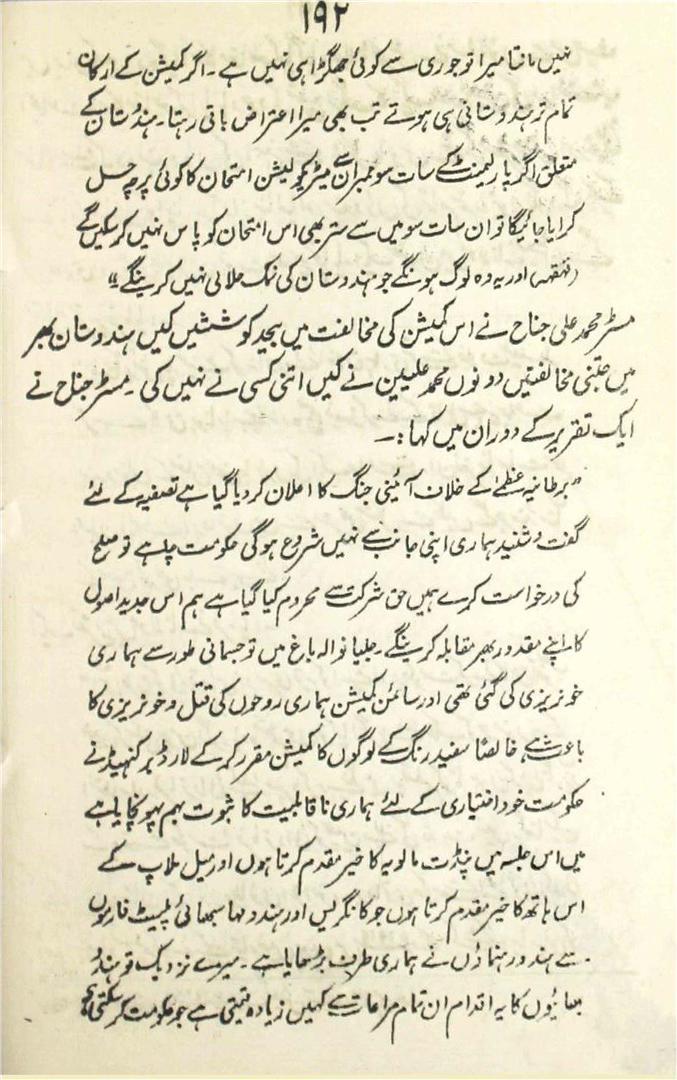 ۱۹۲
نہیں مانتا میرا تو جوری سے کوئی جھگڑا ہی نہیں ہے۔ اگر کمیشن کے ارکان
تمام تر ہندوستانی ہی ہوتے تب بھی میرا اعتراض باقی رہتا۔ ہندوستان کے
متعلق اگر پارلیمنٹ کے سات سو ممبران سے میٹریکولیشن امتحان کا کوئی پرچہ حل
کرایا جائیگا تو ان سات سو میں سے ستر بھی اس امتحان کو پاس نہیں کر سکیں گے
(قہقہہ) اور یہ وہ لوگ ہونگے جو ہندوستان کی نمک حلالی نہیں کرینگے"
مسٹر محمد علی جناح نے اس کمیشن کی مخالفت میں بیحد کوششیں کیں ہندوستان بھر
میں جتنی مخالفتیں دونوں محمد علیین نے کیں اتنی کسی نے نہیں کی۔ مسٹر جناح نے
ایک تقریر کے دوران میں کہا :۔
"برطانیہ عظمیٰ کے خلاف آئینی جنگ کا اعلان کر دیا گیا ہے تصفیہ کے لئے
گفت و شنید ہماری اپنی جانب سے نہیں شروع ہوگی حکومت چاہے تو صلح
کی درخواست کرے ہمیں حق شرکت سے محروم کیا گیا ہے ہم اس جدید اصول
کا اپنے مقدور بھر مقابلہ کرینگے۔ جلیانوالہ باغ میں تو جسمانی طور سے ہماری
خونریزی کی گئی تھی اور سائمن کمیشن ہماری روحوں کی قتل و خونریزی کا
باعث ہے خالصاً سفید رنگ کے لوگوں کا کمیشن مقرر کر کے لارڈ برکنہیڈ نے
حکومت خود اختیاری کے لئے ہماری ناقابلیت کا ثبوت بہم پہونچایا ہے
میں اس جلسہ میں پنڈت مالویہ کا خیر مقدم کرتا ہوں اور میل ملاپ کے
اس ہاتھ کا خیر مقدم کرتا ہوں جو کانگریس اور ہندو مہا سبھائی پلیٹ فارموں
سے ہندو رہنماؤں نے ہماری طرف بڑھایا ہے۔ میرے نزدیک تو ہندو
بھائیوں کا یہ اقدام ان تمام مراعات سے کہیں زیادہ قیمتی ہے جو حکومت کر سکتی ہے